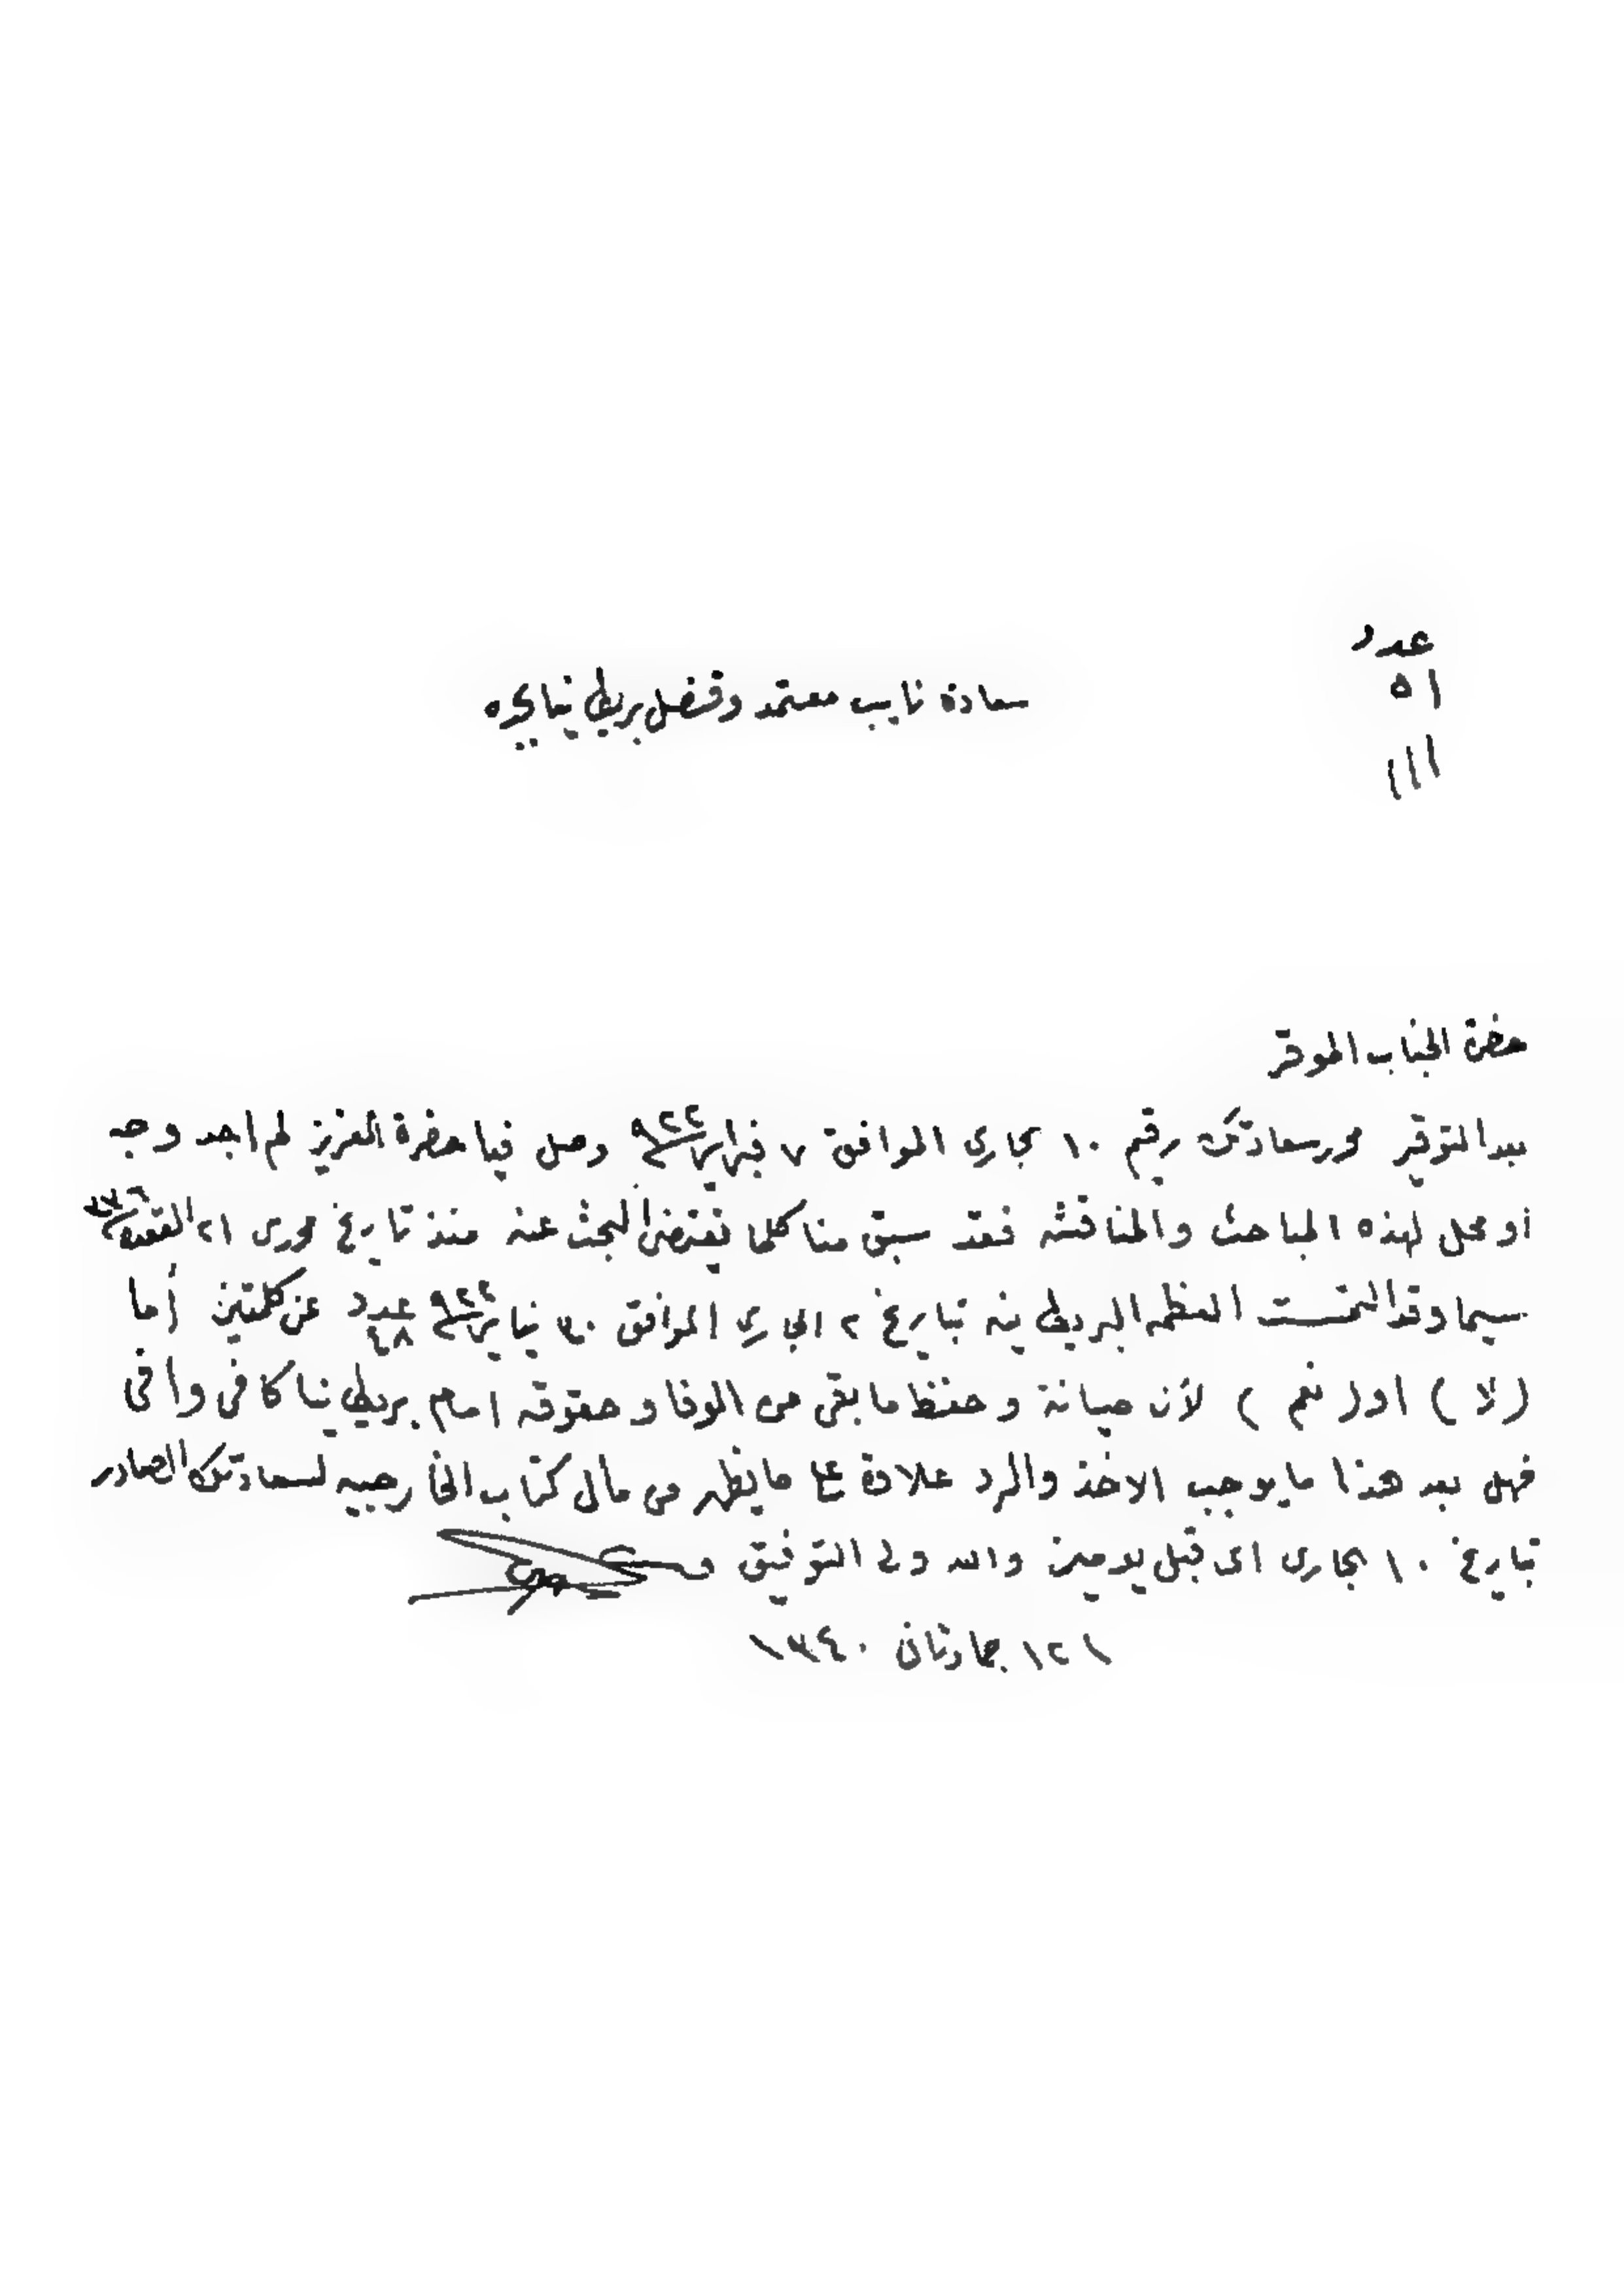 عدد
٥١
١١١
سعادة نايب معتمد وقنصل بريطانيا بجده
حضرة الجناب الموقر
بيد التوقير محرر سعادتكم رقم ١٠ جاري الموافق ٧ فبراير ٩٢٢ وصل فيا حضرة العزيز لم اجد وجه
أو محل لهذه المباحث والمناقشه فقد سبق منا كلما يقتضى البحث عنه منذ تاريخ محررى ٢١ القعده
سيما وقد التمست العظمه البريطانيه بتاريخ ٢ الجاري الموافق ٣٠ يناير ٩٢٢ عدد ٤٨ عن كلمتين أما
(لا) او (نعم) لأن صيانة وحفظ ما بقى من الوفا وحقوقه امام بريطانيا كافى وافى
فهل بعد هذا ما يوجب الاخذ والرد علاوة على ما يظهر من مأل كتاب الخارجيه لسعادتكم الصادر
بتاريخ ١٠ جارى اى قبل يومين والله ولى التوفيق
١٢ جمادثانى ١٣٤٠